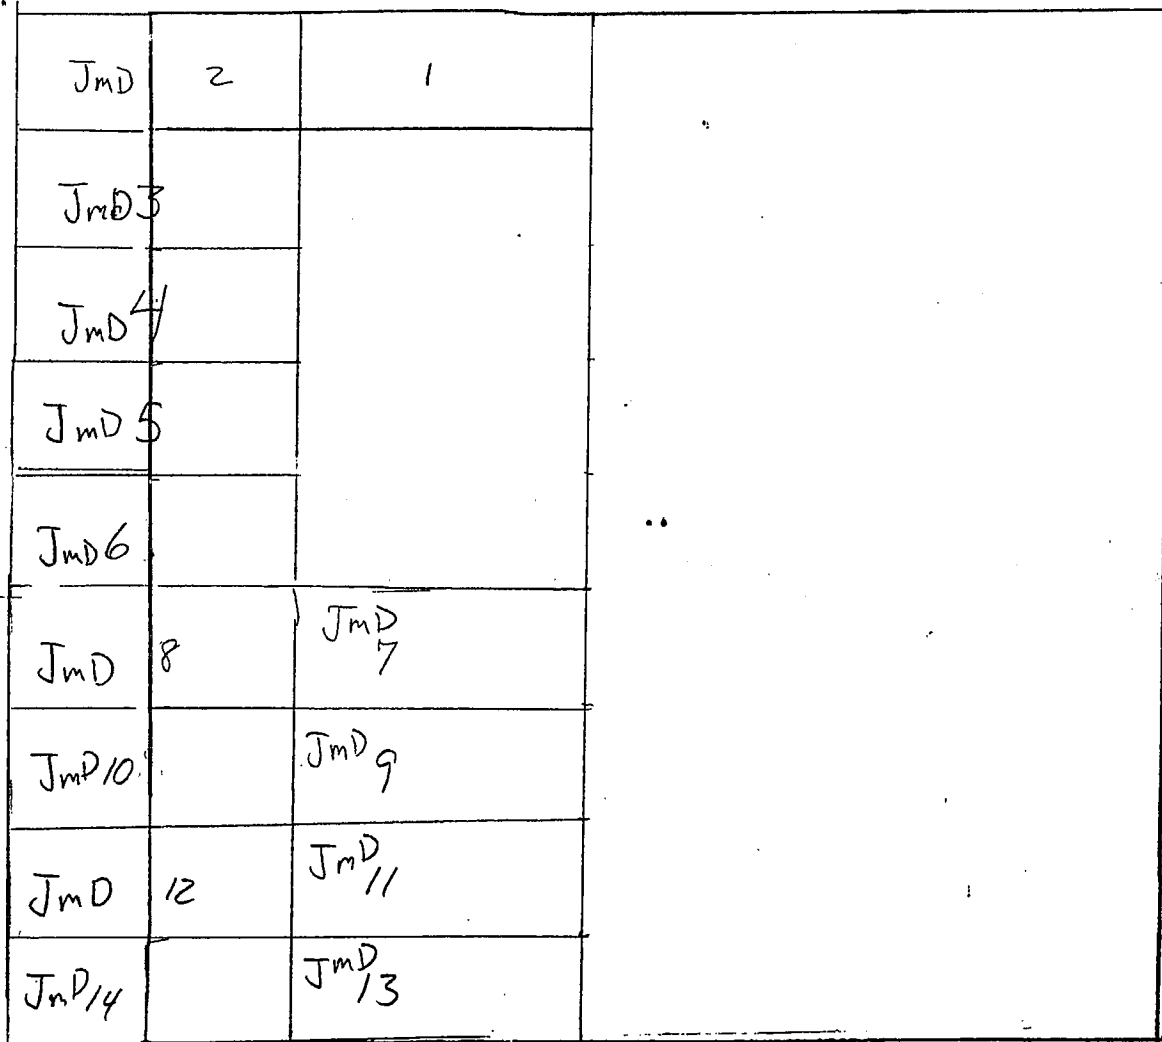 JmD 2 1
JmD3
JmD4
JmD5
JmD6
JmD 8 JmD 7
JmD10 JmD 9
JmD 12 JmD 11
JmD14 JmD 13